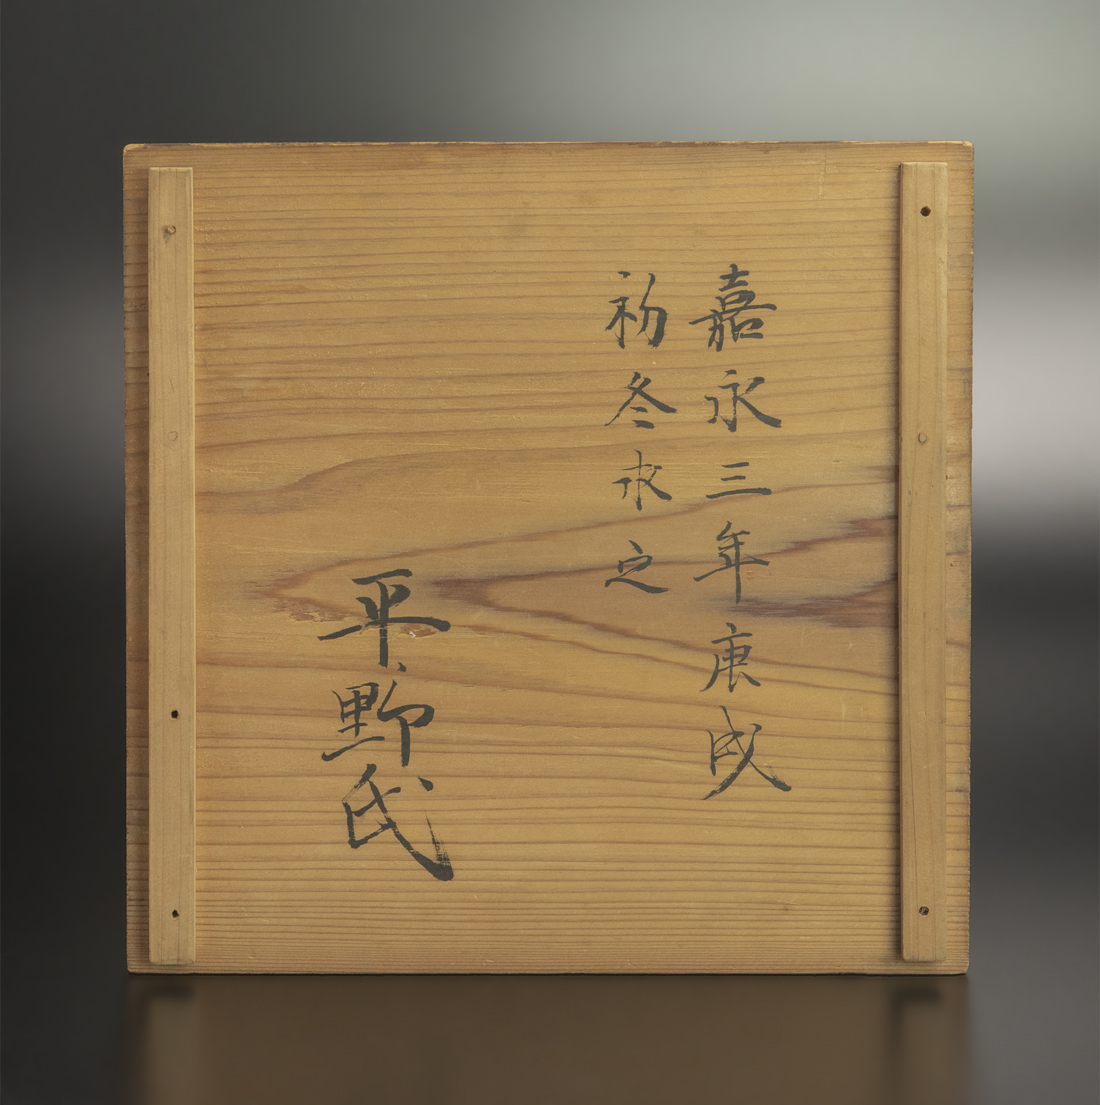 嘉永三年庚戌
初冬求之
平野氏